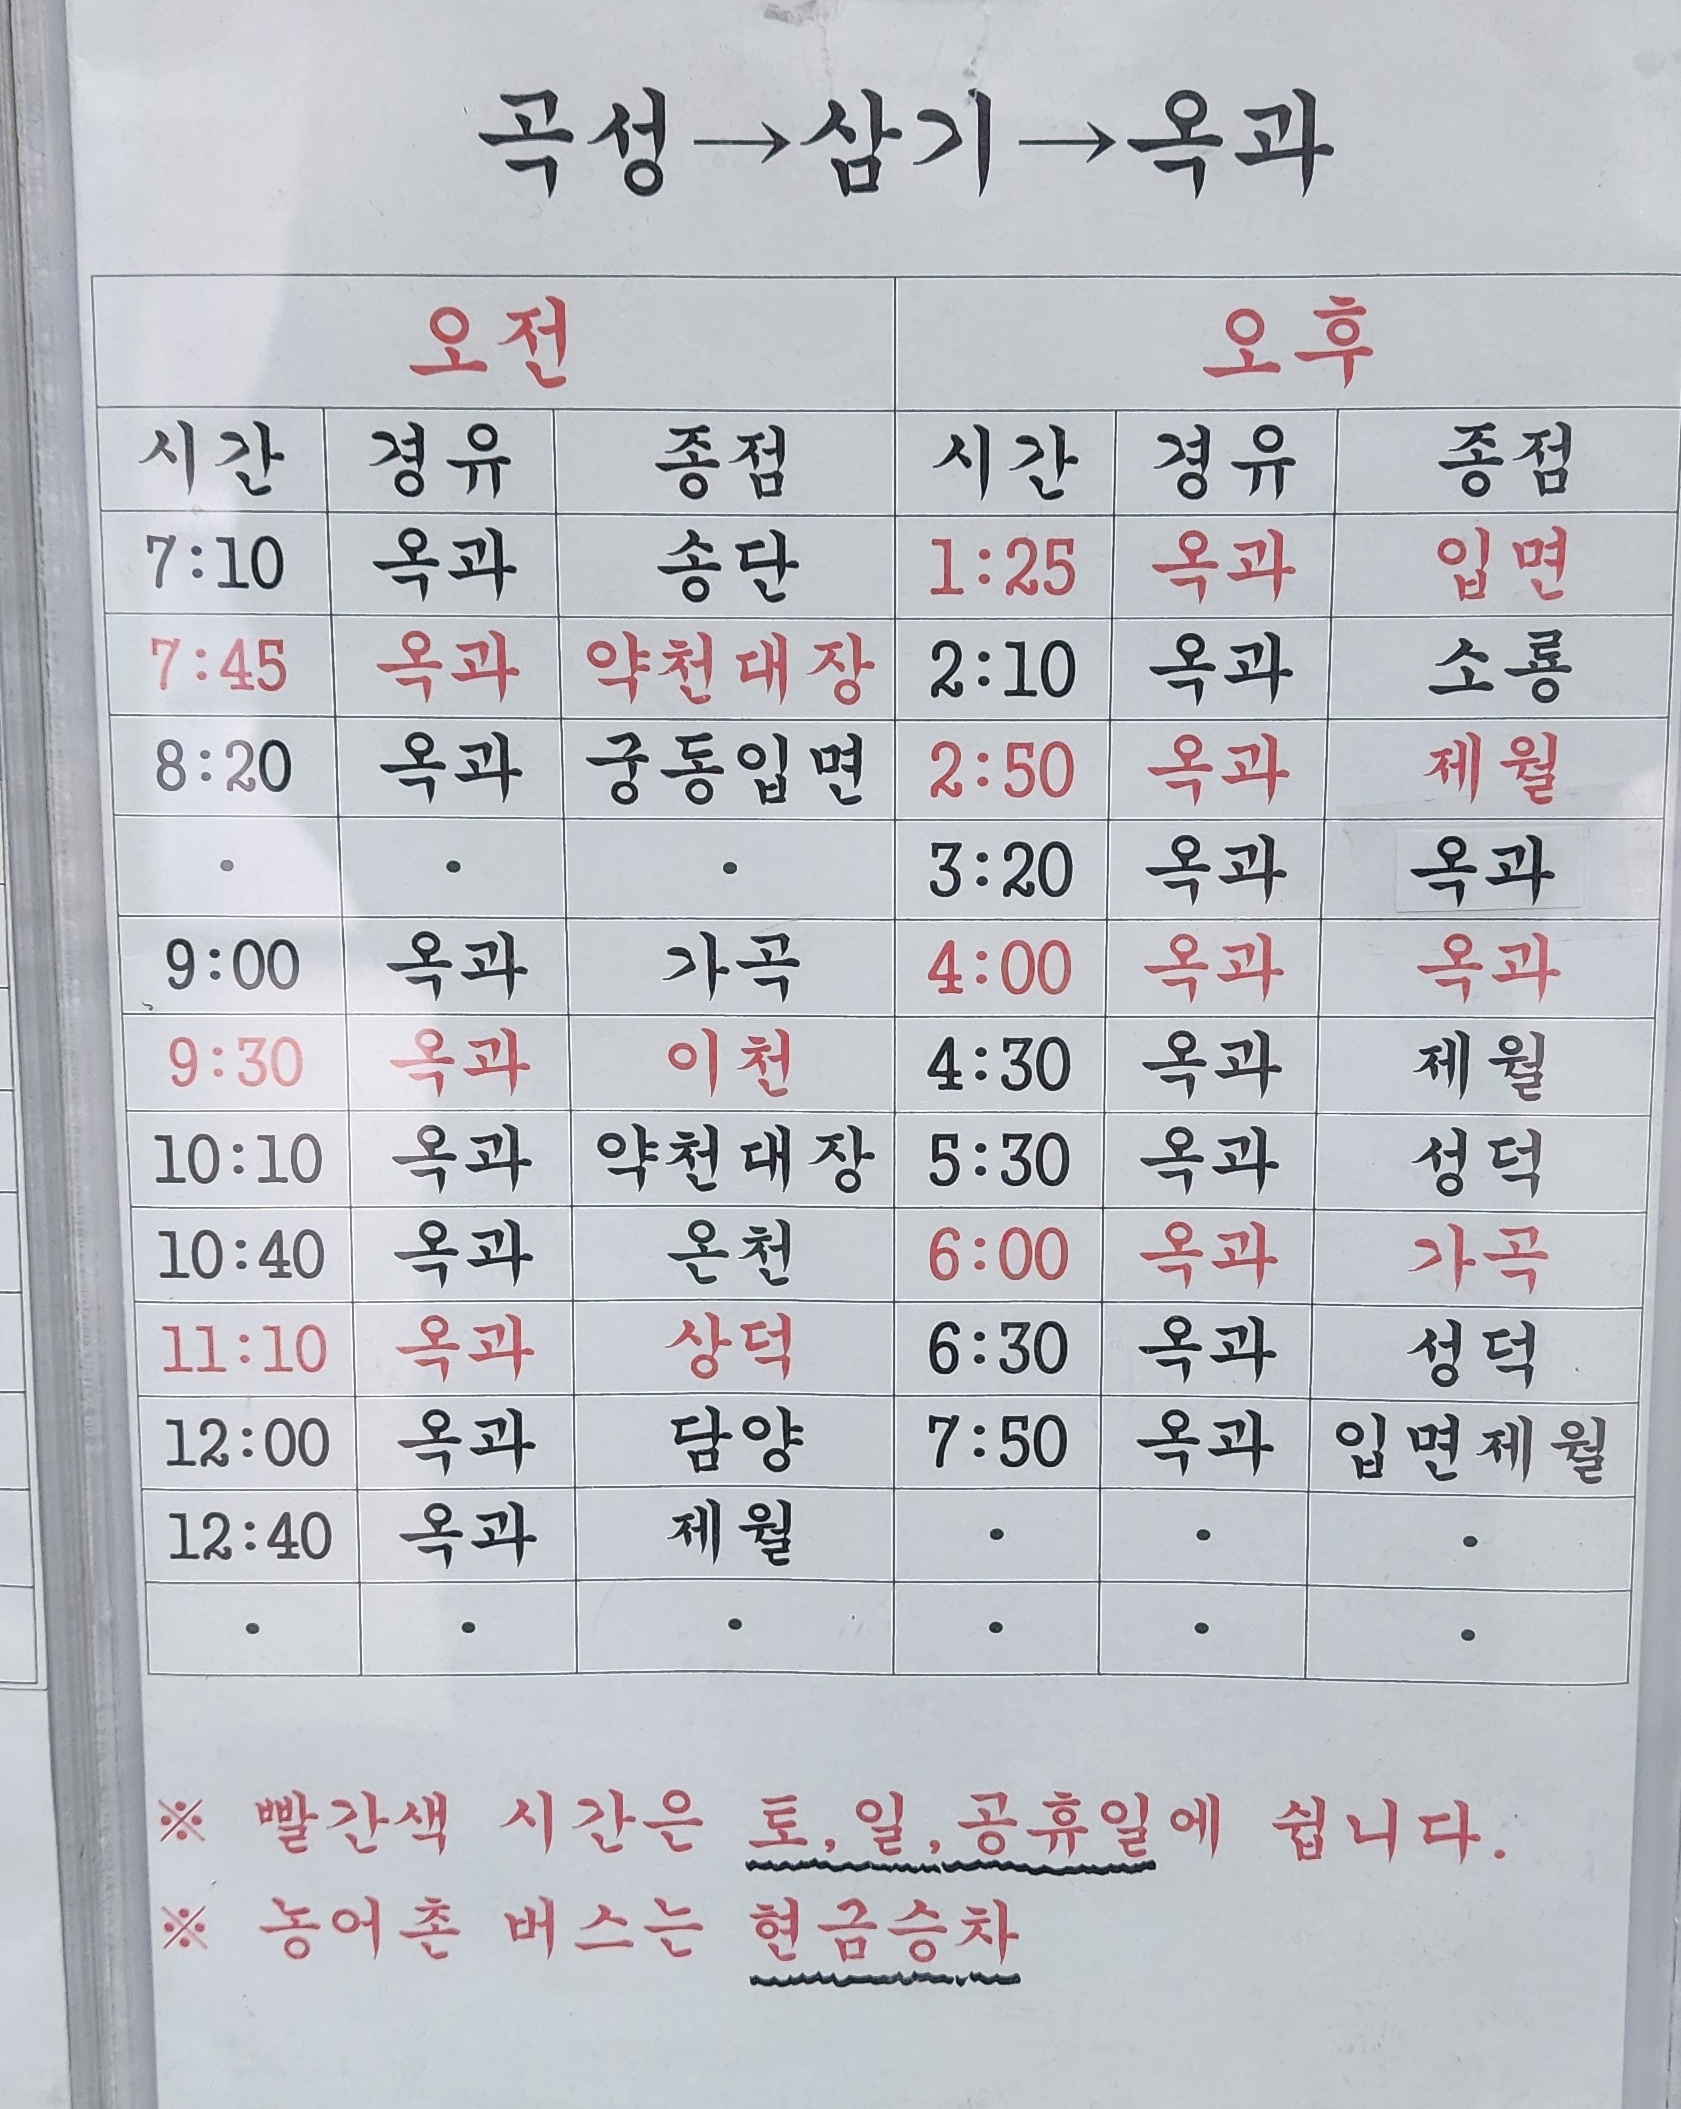 곡성→삼기→옥과
오전 오후
시간 경유 종점 시간 경유 종점
7:10 옥과 송단 1:25 옥과 입면
7:45 옥과 약천대장 2:10 옥과 소룡
8:20 옥과 궁동입면 2:50 옥과 제월
· · · 3:20 옥과 옥과
9:00 옥과 가곡 4:00 옥과 옥과
9:30 옥과 이천 4:30 옥과 제월
10:10 옥과 약천대장 5:30 옥과 성덕
10:40 옥과 온천 6:00 옥과 가곡
11:10 옥과 상덕 6:30 옥과 성덕
12:00 옥과 담양 7:50 옥과 입면제월
12:40 옥과 제월 · · ·
· · · · · ·
※ 빨간색 시간은 토,일,공휴일에 쉽니다.
※ 농어촌 버스는 현금승차